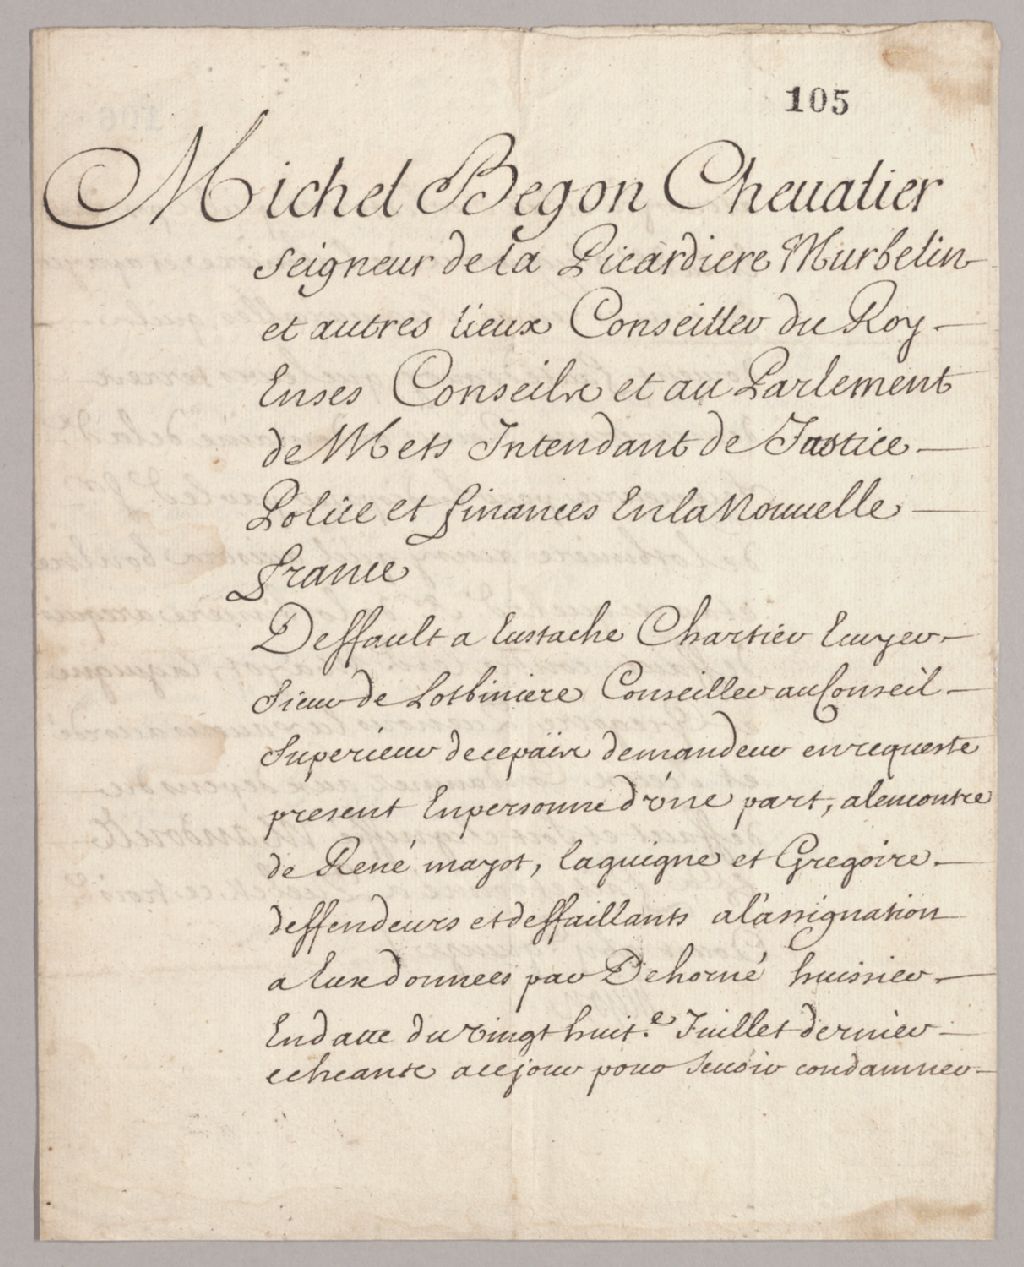 105
Michel Begon Cheualier
Seigneur de la Picardiere Murbelin
et autres lieux Conseiller du Roy
Enses Conseils et au Parlement
de Mets Intendant de Justice
Police et finances En la Nouuelle
france
Deffault a Eustache Chartier Ecuyer
Sieur de Lotbiniere Conseiller au Conseil
Superieur de cepaïx demandeur en requeste
present Enpersonne d'vne part, alencontre
de René mazot, laguigne et Gregoire
deffendeurs et deffaillants a l'assignation
a Eux donnees par Dehorné huissier
Endatte du vingt huit.e Juillet dernier
echeante acejour pour Seuoir condamner